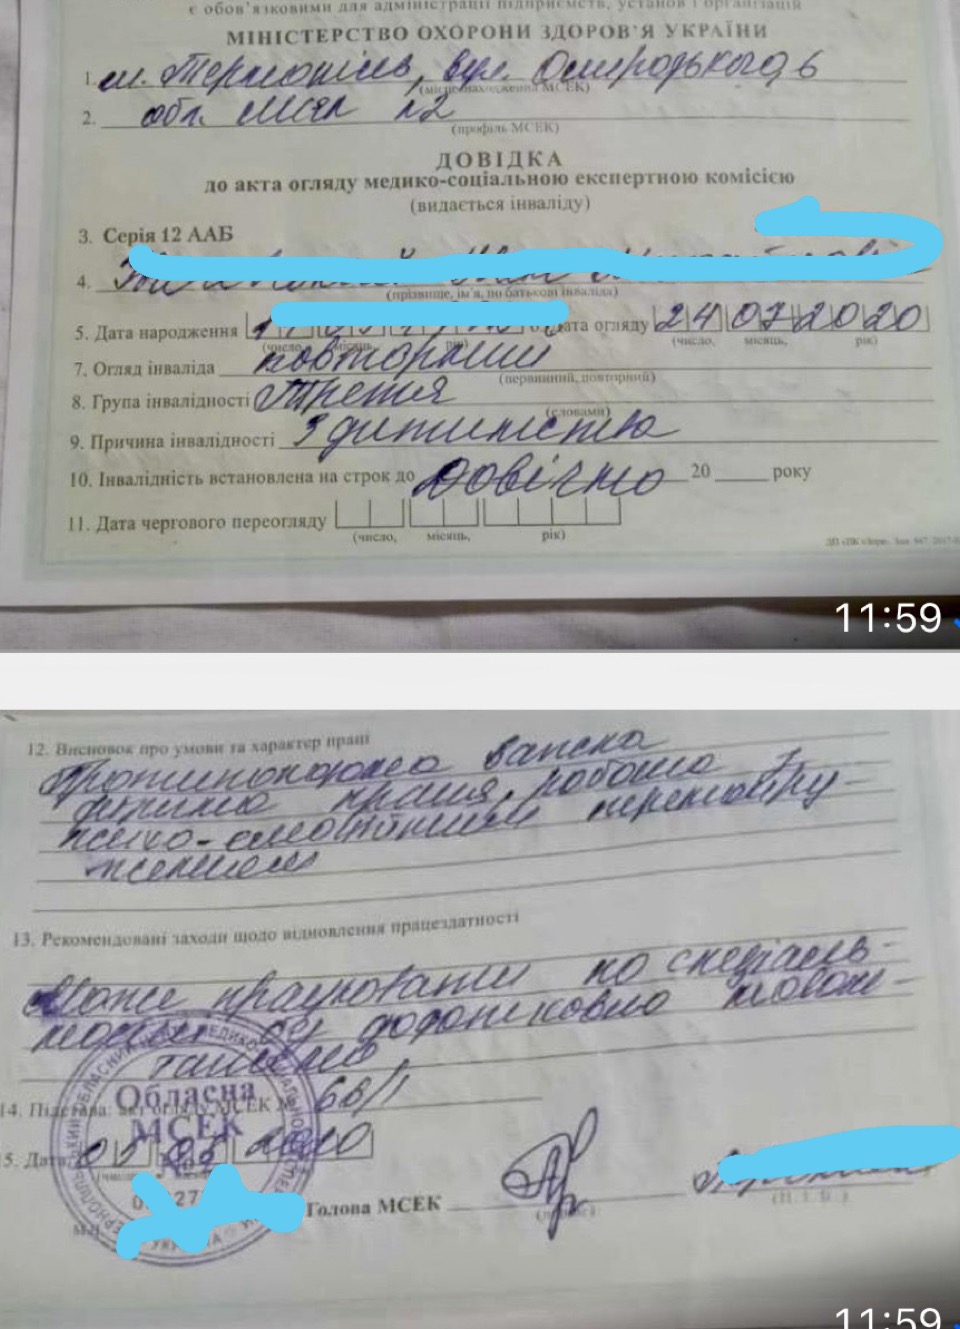 є обов'язковими для адміністрації підприємств, установ і організацій
МІНІСТЕРСТВО ОХОРОНИ ЗДОРОВ'Я УКРАЇНИ
1. м. Тернопіль, вул. 6
(місцезнаходження МСЕК)
2. обл. МСЕК №2
(профіль МСЕК)
ДОВІДКА
до акта огляду медико-соціальною експертною комісією
(видається інваліду)
3. Серія 12 ААБ
4.
(прізвище, ім'я, по батькові інваліда)
5. Дата народження 6. Дата огляду 24 07 2020
(число, місяць, рік) (число, місяць, рік)
7. Огляд інваліда повторний
(первинний, повторний)
8. Група інвалідності Третя
(словами)
9. Причина інвалідності З дитинства
10. Інвалідність встановлена на строк до Довічно 20 року
11. Дата чергового переогляду
(число, місяць, рік)
11:59
12. Висновок про умови та характер праці
Протипоказана важка
фізична праця, робота з
психо-емоційним перенапру-
женням
13. Рекомендовані заходи щодо відновлення працездатності
Може працювати по спеціаль-
ності
14. Підстава: акт огляду МСЕК № 66/1
Обласна
МСЕК
№2
15. Дата 2020
Голова МСЕК
(підпис) (П.І.Б.)
М.П.
УКРАЇНА
11:59